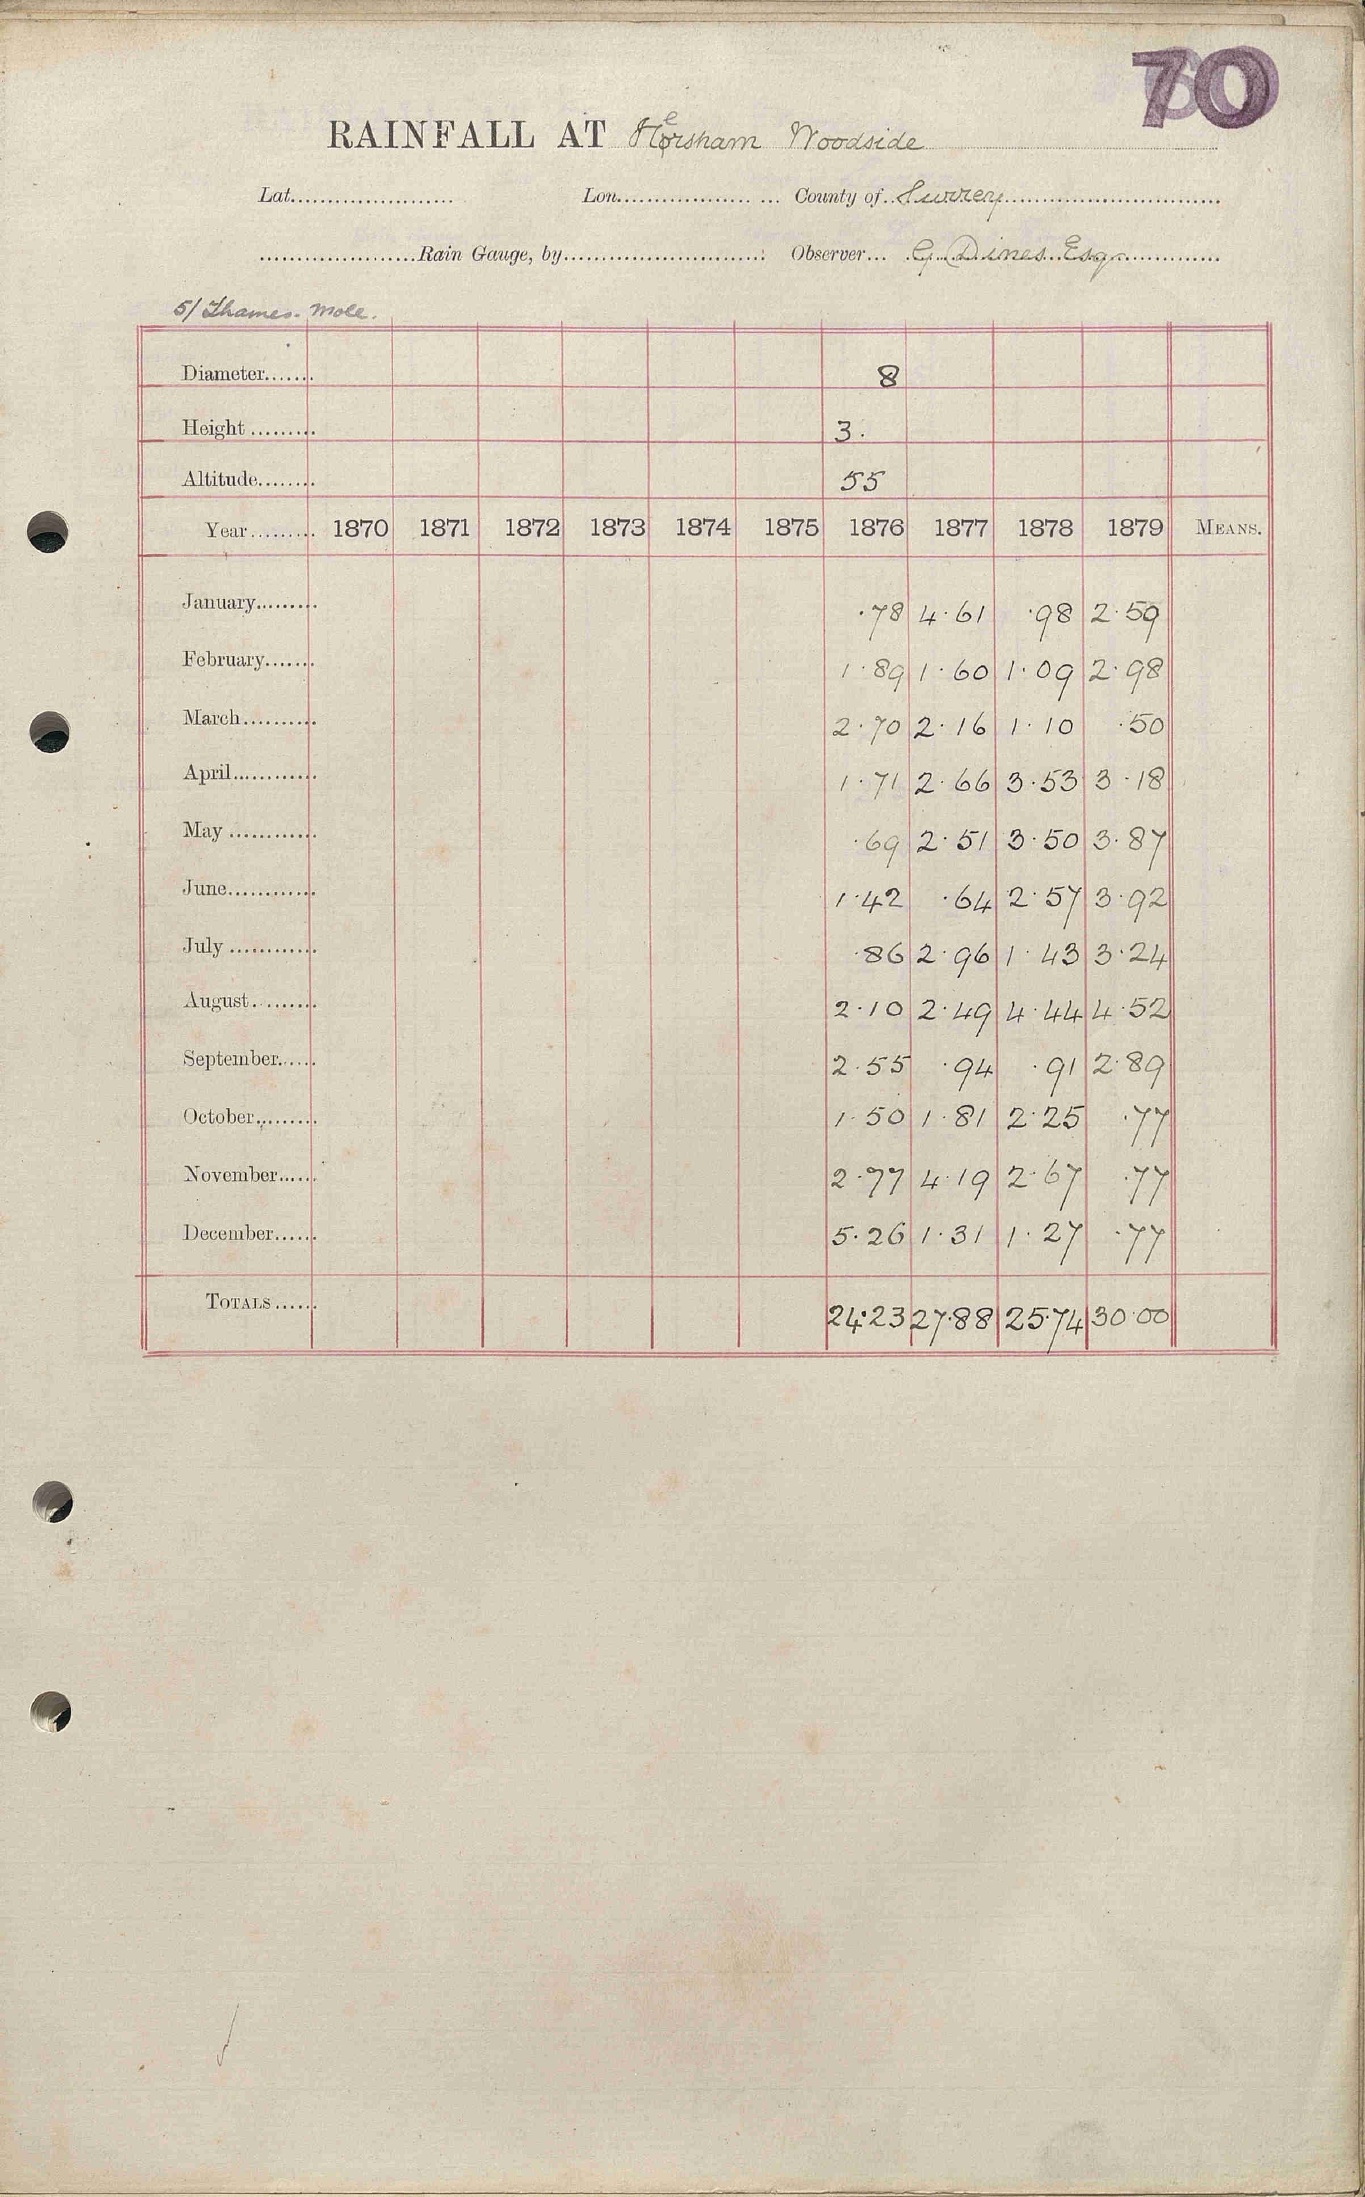 70
RAINFALL AT Hersham Woodside
Lat...................... Lon.................. ... County of Surrey
.....................Rain Gauge, by........................... Observer... G Dines Esqr
5/ Thames. Mole.
Diameter....... 8
Height ......... 3.
Altitude........ 55
Year......... 1870 1871 1872 1873 1874 1875 1876 1877 1878 1879 MEANS.
January......... .78 4.61 .98 2.59
February....... 1.89 1.60 1.09 2.98
March.......... 2.70 2.16 1.10 .50
April............ 1.71 2.66 3.53 3.18
May ............ .69 2.51 3.50 3.87
June............ 1.42 .64 2.57 3.92
July ............ .86 2.96 1.43 3.24
August......... 2.10 2.49 4.44 4.52
September...... 2.55 .94 .91 2.89
October......... 1.50 1.81 2.25 .77
November...... 2.77 4.19 2.67 .77
December...... 5.26 1.31 1.27 .77
TOTALS...... 24.23 27.88 25.74 30.00